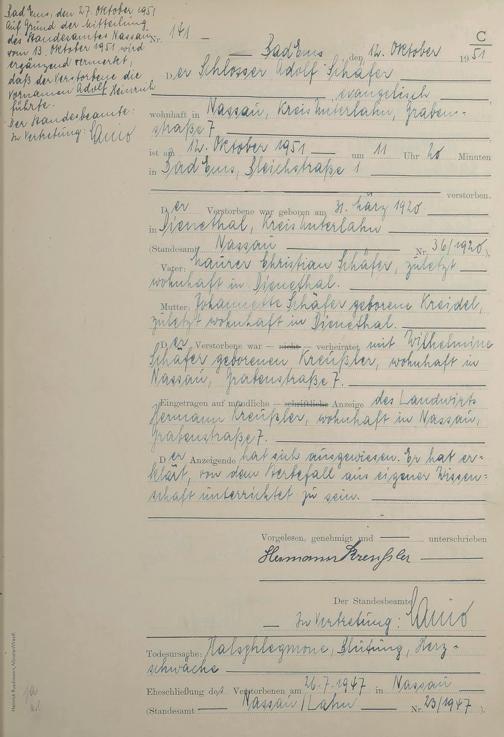 Bad Ems, den 27. Oktober 1951
Auf Grund der Mitteilung
des Standesamtes Nassau
vom 13. Oktober 1951 wird
ergänzend vermerkt,
daß der Verstorbene die
Vornamen Adolf Heinrich
führte.
Der Standesbeamte:
In Vertretung:
C
Nr. 141
Bad Ems, den 12. Oktober 1951
Der Schlosser Adolf Schäfer
evangelisch
wohnhaft in Nassau, Kreis Unterlahn, Graben-
straße 7
ist am 12. Oktober 1951 um 11 Uhr 20 Minuten
in Bad Ems, Bleichstraße 1
verstorben.
Der Verstorbene war geboren am 31. März 1920
in Dienethal, Kreis Unterlahn
(Standesamt Nassau Nr. 36/1920)
Vater: Maurer Christian Schäfer, zuletzt
wohnhaft in Dienethal.
Mutter: Johannette Schäfer geborene Kreidel,
zuletzt wohnhaft in Dienethal.
Der Verstorbene war – nicht – verheiratet mit Wilhelmine
Schäfer geborenen Kreußler, wohnhaft in
Nassau, Grabenstraße 7.
Eingetragen auf mündliche – schriftliche – Anzeige des Landwirts
Hermann Kreußler, wohnhaft in Nassau,
Grabenstraße 7.
Der Anzeigende hat sich ausgewiesen. Er hat er-
klärt, von dem Sterbefall aus eigener Wissen-
schaft unterrichtet zu sein.
Vorgelesen, genehmigt und unterschrieben
Hermann Kreußler
Der Standesbeamte
In Vertretung:
Todesursache: Halsphlegmone, Blutung, Herz-
schwäche
Eheschließung des Verstorbenen am 26.7.1947 in Nassau
(Standesamt Nassau/Lahn Nr. 23/1947)